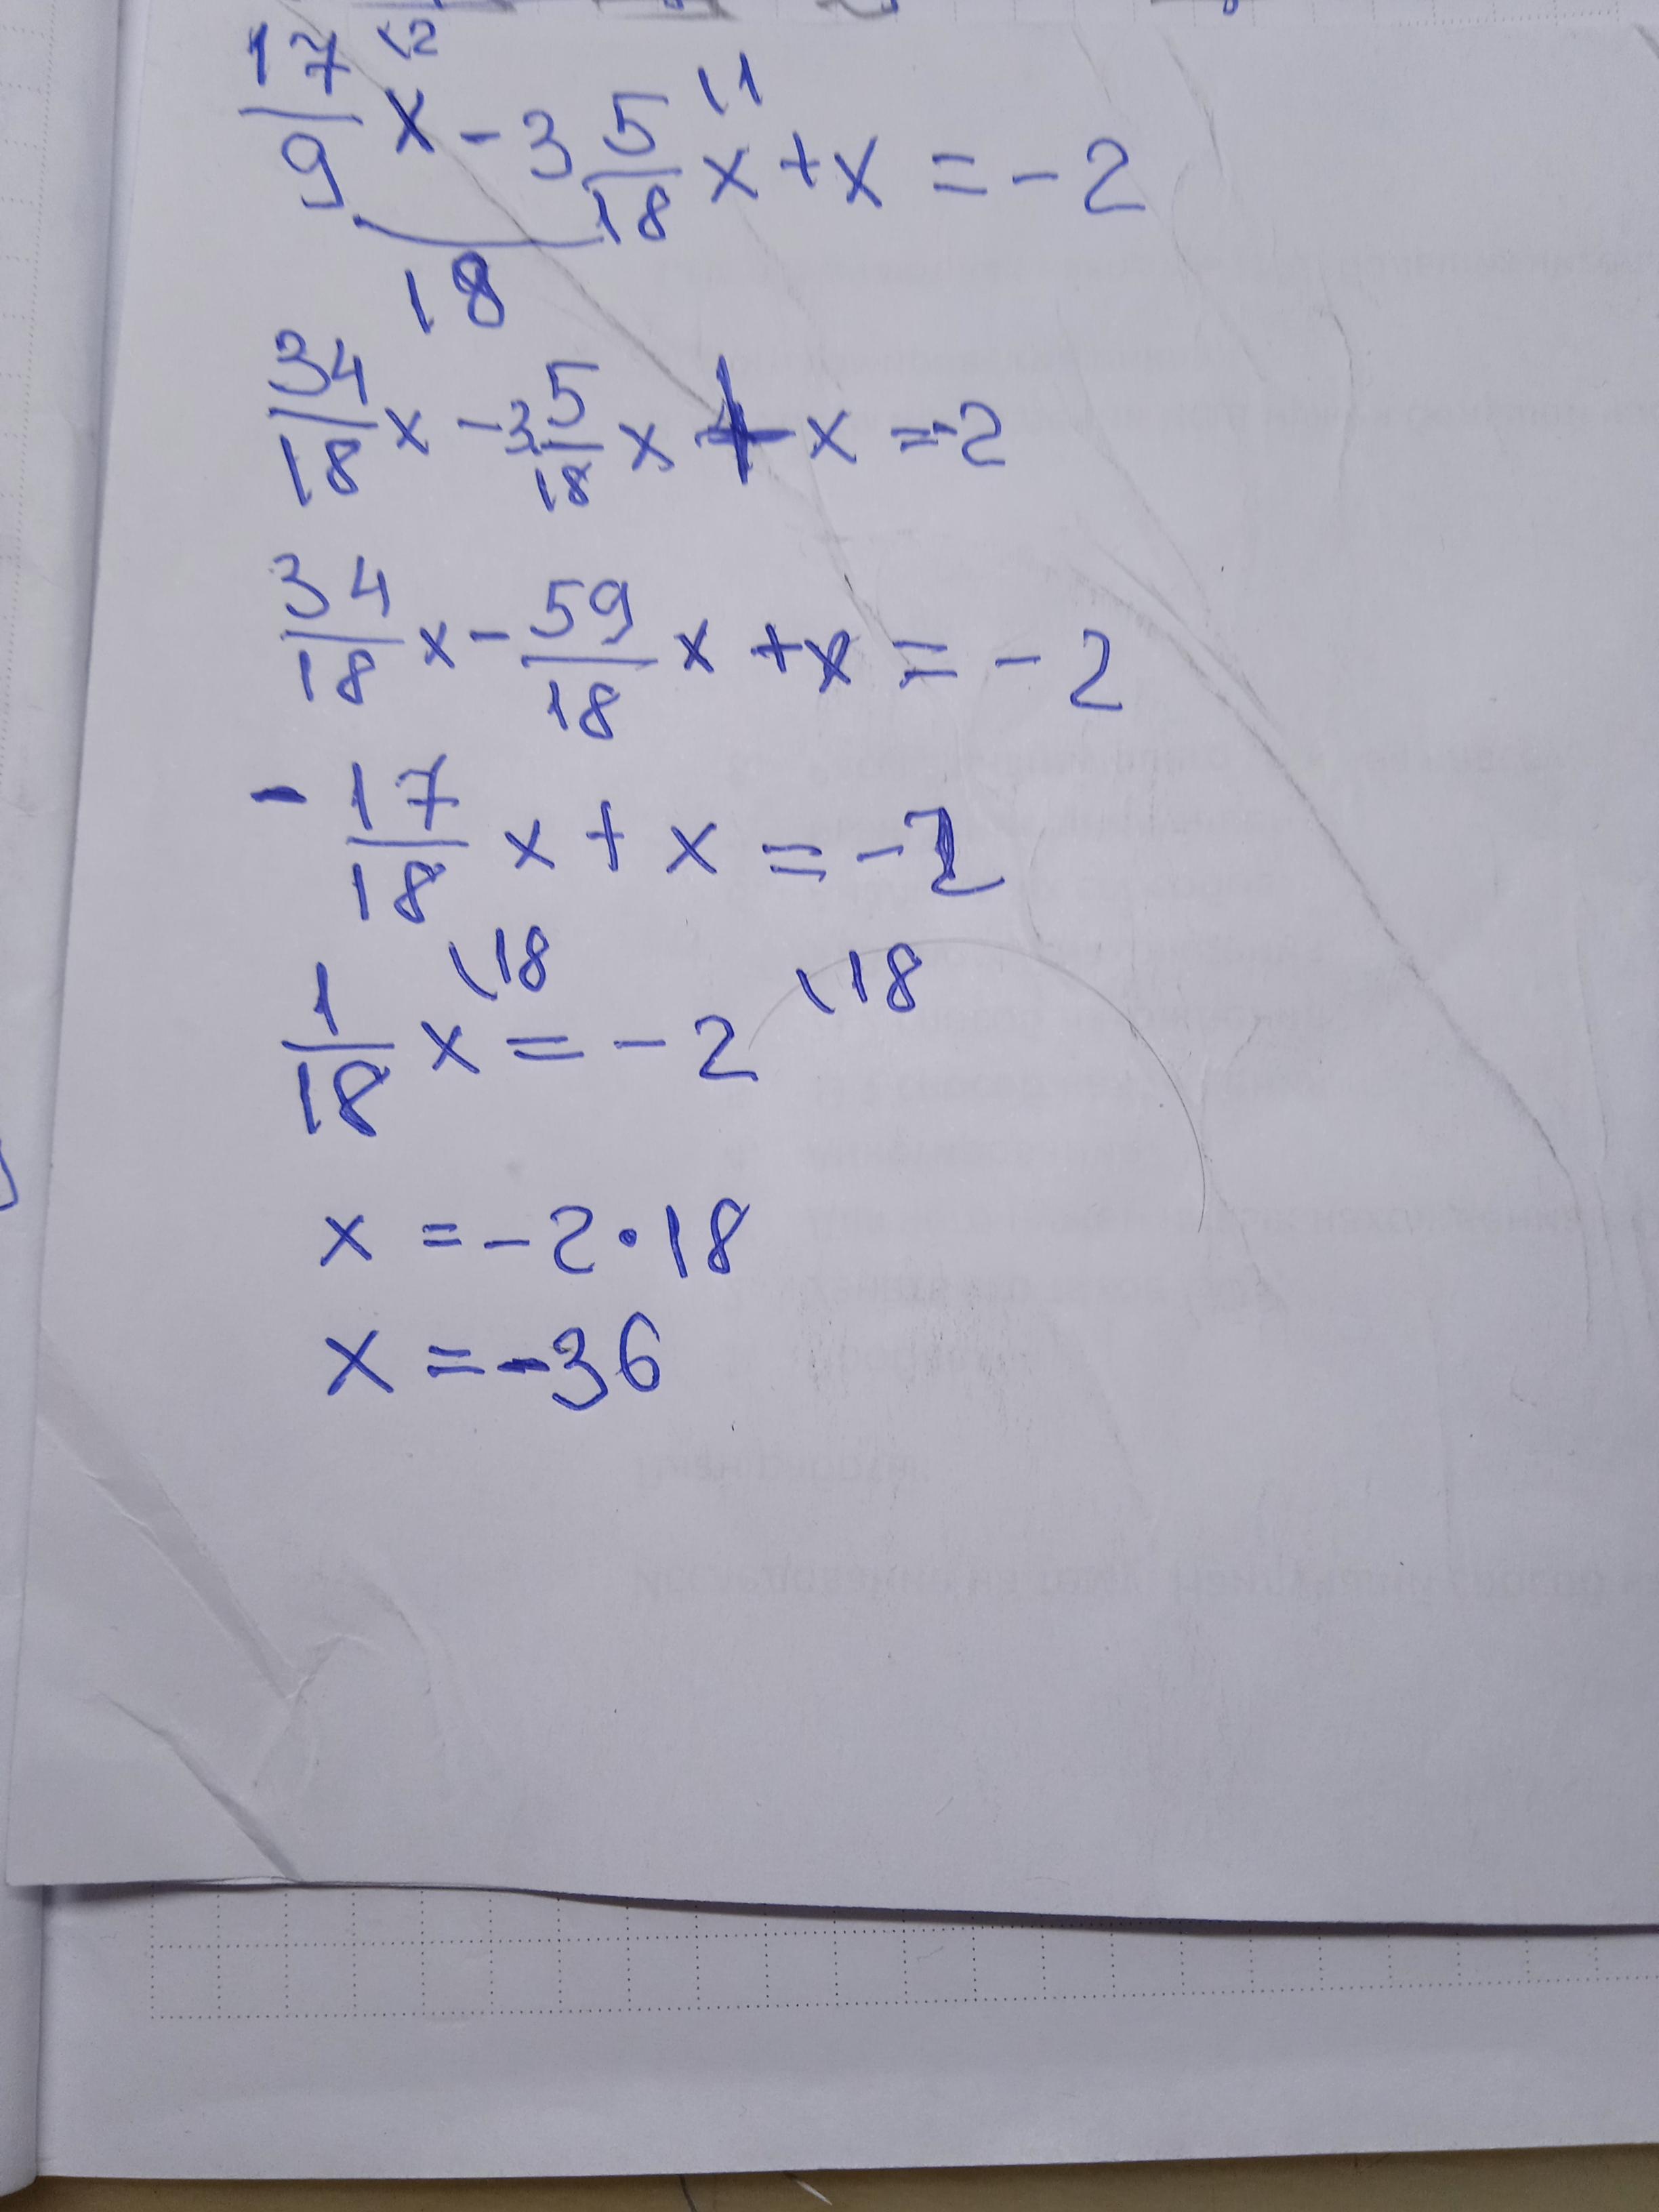 17/9 \2 x - 3 5/18 \1 x + x = -2
18
34/18 x - 3 5/18 x + x = -2
34/18 x - 59/18 x + x = -2
- 17/18 x + x = -2
1/18 x \18 = -2 \18
x = -2 · 18
x = -36